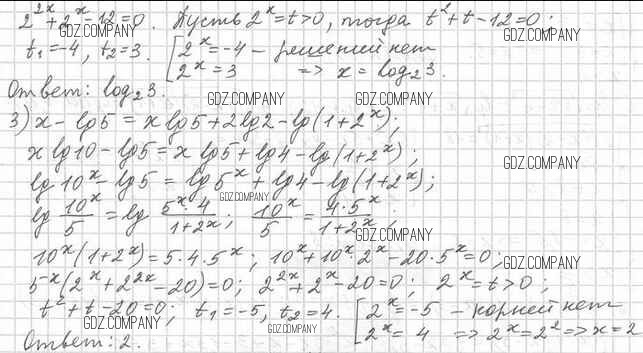 2^{2x} + 2^x - 12 = 0. Пусть 2^x = t > 0, тогда t^2 + t - 12 = 0;
GDZ.COMPANY
t_1 = -4, t_2 = 3. [ 2^x = -4 - решений нет
2^x = 3 => x = log_2 3.
Ответ: log_2 3.
GDZ.COMPANY GDZ.COMPANY
3) x - lg 5 = x lg 5 + 2 lg 2 - lg(1 + 2^x);
x lg 10 - lg 5 = x lg 5 + lg 4 - lg(1 + 2^x);
GDZ.COMPANY
lg 10^x - lg 5 = lg 5^x + lg 4 - lg(1 + 2^x);
GDZ.COMPANY
lg 10^x/5 = lg 5^x·4/1+2^x; 10^x/5 = 4·5^x/1+2^x;
GDZ.COMPANY
10^x(1 + 2^x) = 5·4·5^x; 10^x + 10^x·2^x - 20·5^x = 0;
GDZ.COMPANY
5^x(2^x + 2^{2x} - 20) = 0; 2^{2x} + 2^x - 20 = 0; 2^x = t > 0;
t^2 + t - 20 = 0; t_1 = -5, t_2 = 4. [ 2^x = -5 - корней нет
GDZ.COMPANY GDZ.COMPANY GDZ.COMPANY
2^x = 4 => 2^x = 2^2 => x = 2
Ответ: 2.